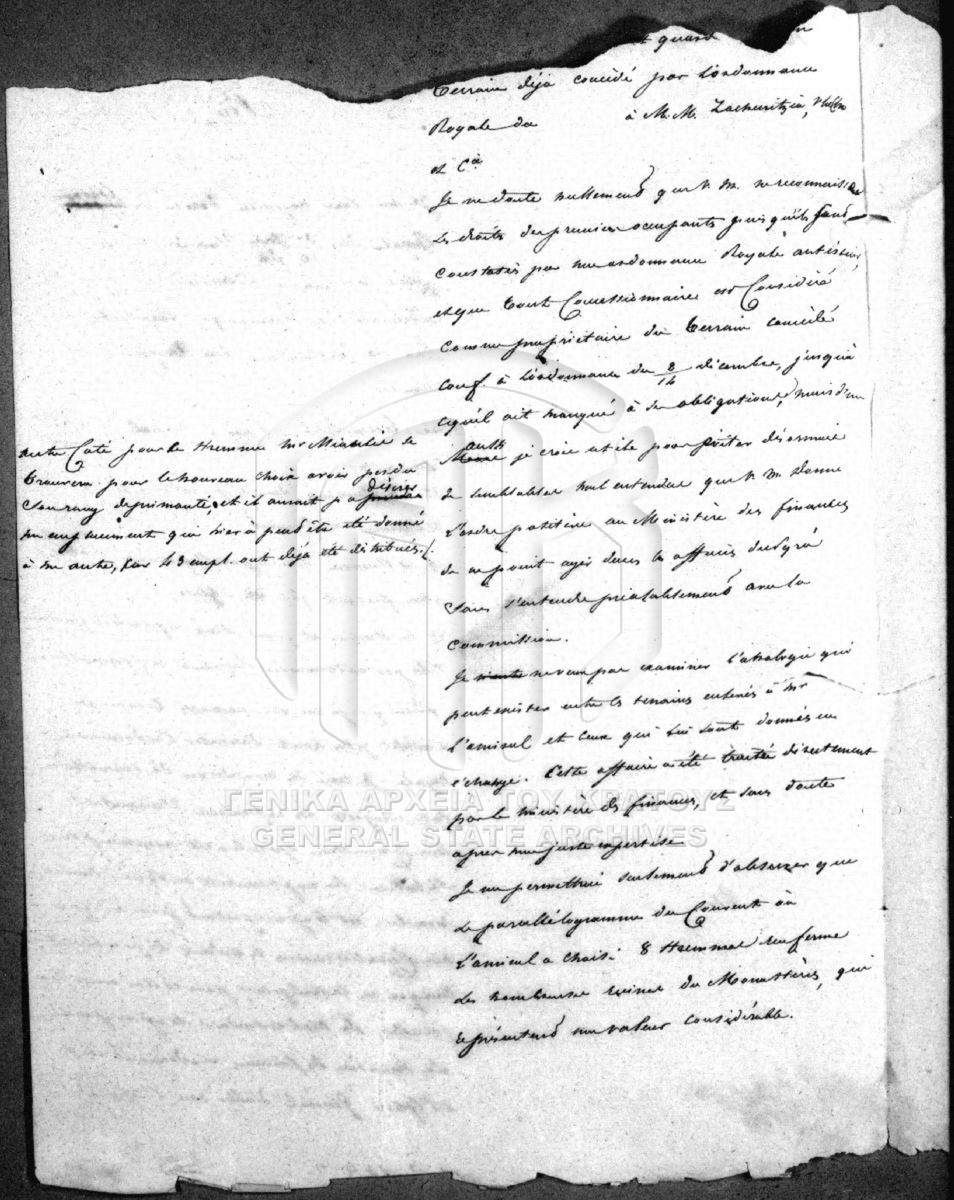 quand
terrain déjà concédé par l'ordonnance
Royale du à M. M. Zacharitzia,
et Cie
Je ne doute nullement que V. M. ne reconnaisse
les droits des premiers occupants puisqu'ils sont
constatés par une ordonnance Royale antérieure,
et que tout Concessionnaire est Considéré
comme propriétaire du terrain concédé
conf. à l'ordonnance du 8/14 décembre, jusqu'à
cequ'il ait manqué à ses obligations, mais d'un
autre je crois utile pour éviter désormais
de semblables malentendus que V. M. donne
l'ordre positive au Ministère des finances
de ne point agir dans les affaires du Pyrée
sans s'entendre préalablement avec la
commission.
Je ne veux pas examiner l'analogie qui
peut exister entre les terrains enlevés à Mr
L'amiral et ceux qui lui sont donnés en
échange. Cette affaire a été traitée directement
par le ministère des finances, et sans doute
après une juste expertise
Je me permettrai seulement d'observer que
le parallélogramme du Couvent où
l'amiral a choisi 8 Stremmes renferme
les nombreuses ruines du Monastère, qui
représentent une valeur considérable.
autre Coté pour le Stremme Mr Miaulis se
trouvera pour le nouveau choix avoir perdu
son rang de primauté, et il aurait pu désirer
un emplacement qui hier à peut être été donné
à un autre, car 43 empl. ont déjà été distribués./.
ΓΕΝΙΚΑ ΑΡΧΕΙΑ ΤΟΥ ΚΡΑΤΟΥΣ
GENERAL STATE ARCHIVES